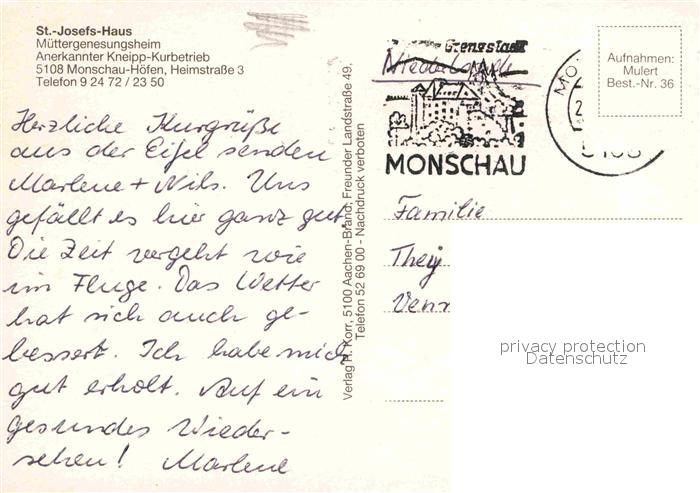 St.-Josefs-Haus
Müttergenesungsheim
Anerkannter Kneipp-Kurbetrieb
5108 Monschau-Höfen, Heimstraße 3
Telefon 9 24 72 / 23 50
Herzliche Kurgrüße
aus der Eifel senden
Marlene + Nils. Uns
gefällt es hier ganz gut.
Die Zeit vergeht wie
im Fluge. Das Wetter
hat sich auch ge-
bessert. Ich habe mich
gut erholt. Auf ein
gesundes Wieder-
sehen! Marlene
Verlag H. Korr, 5100 Aachen-Brand, Freunder Landstraße 49,
Telefon 52 69 00 - Nachdruck verboten
Grenzstadt
MONSCHAU
MO
2
5108
Aufnahmen:
Mulert
Best.-Nr. 36
Familie
They
Venn
privacy protection
Datenschutz